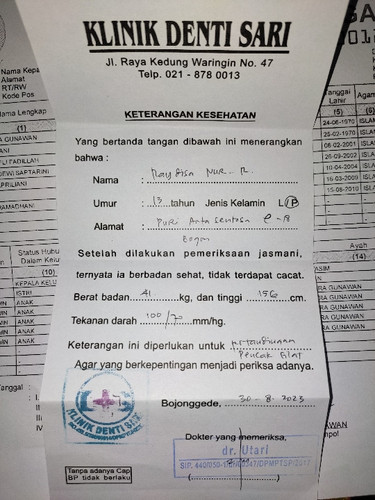 KLINIK DENTI SARI
Jl. Raya Kedung Waringin No. 47
Telp. 021 - 878 0013
KETERANGAN KESEHATAN
Yang bertanda tangan dibawah ini menerangkan
bahwa :
Nama : Raysisa NUR. R.
Umur : 13 tahun Jenis Kelamin L/P
Alamat : PURI Arta Sentosa e-8
Bogor
Setelah dilakukan pemeriksaan jasmani,
ternyata ia berbadan sehat, tidak terdapat cacat.
Berat badan 41 kg, dan tinggi 156 cm.
Tekanan darah 100/70 mm/hg.
Keterangan ini diperlukan untuk pertandingan
Pencak Silat
Agar yang berkepentingan menjadi periksa adanya.
Bojonggede, 30-8-2023
Dokter yang memeriksa,
dr. Utari
KLINIK DENTI SARI
Tanpa adanya Cap
BP tidak berlaku
Nama Kepa
Alamat
RT/RW
Kode Pos
Nama Lengkap
(1)
GUNAWAN
Status Hubu
Dalam Kelu
(10)
KEPALA KELU
ISTRI
ANAK
ANAK
ANAK
ANAK
Tanggal
Lahir
Agam
(5)
24-06-1970 ISLA
25-02-1970 ISLAM
06-02-2001 ISLAM
26-09-2002 ISLAM
10-04-2004 ISLAM
16-03-2009 ISLAM
15-06-2010 ISLAM
Ayah
(14)
RA GUNAWAN
RA GUNAWAN
RA GUNAWAN
RA GUNAWAN